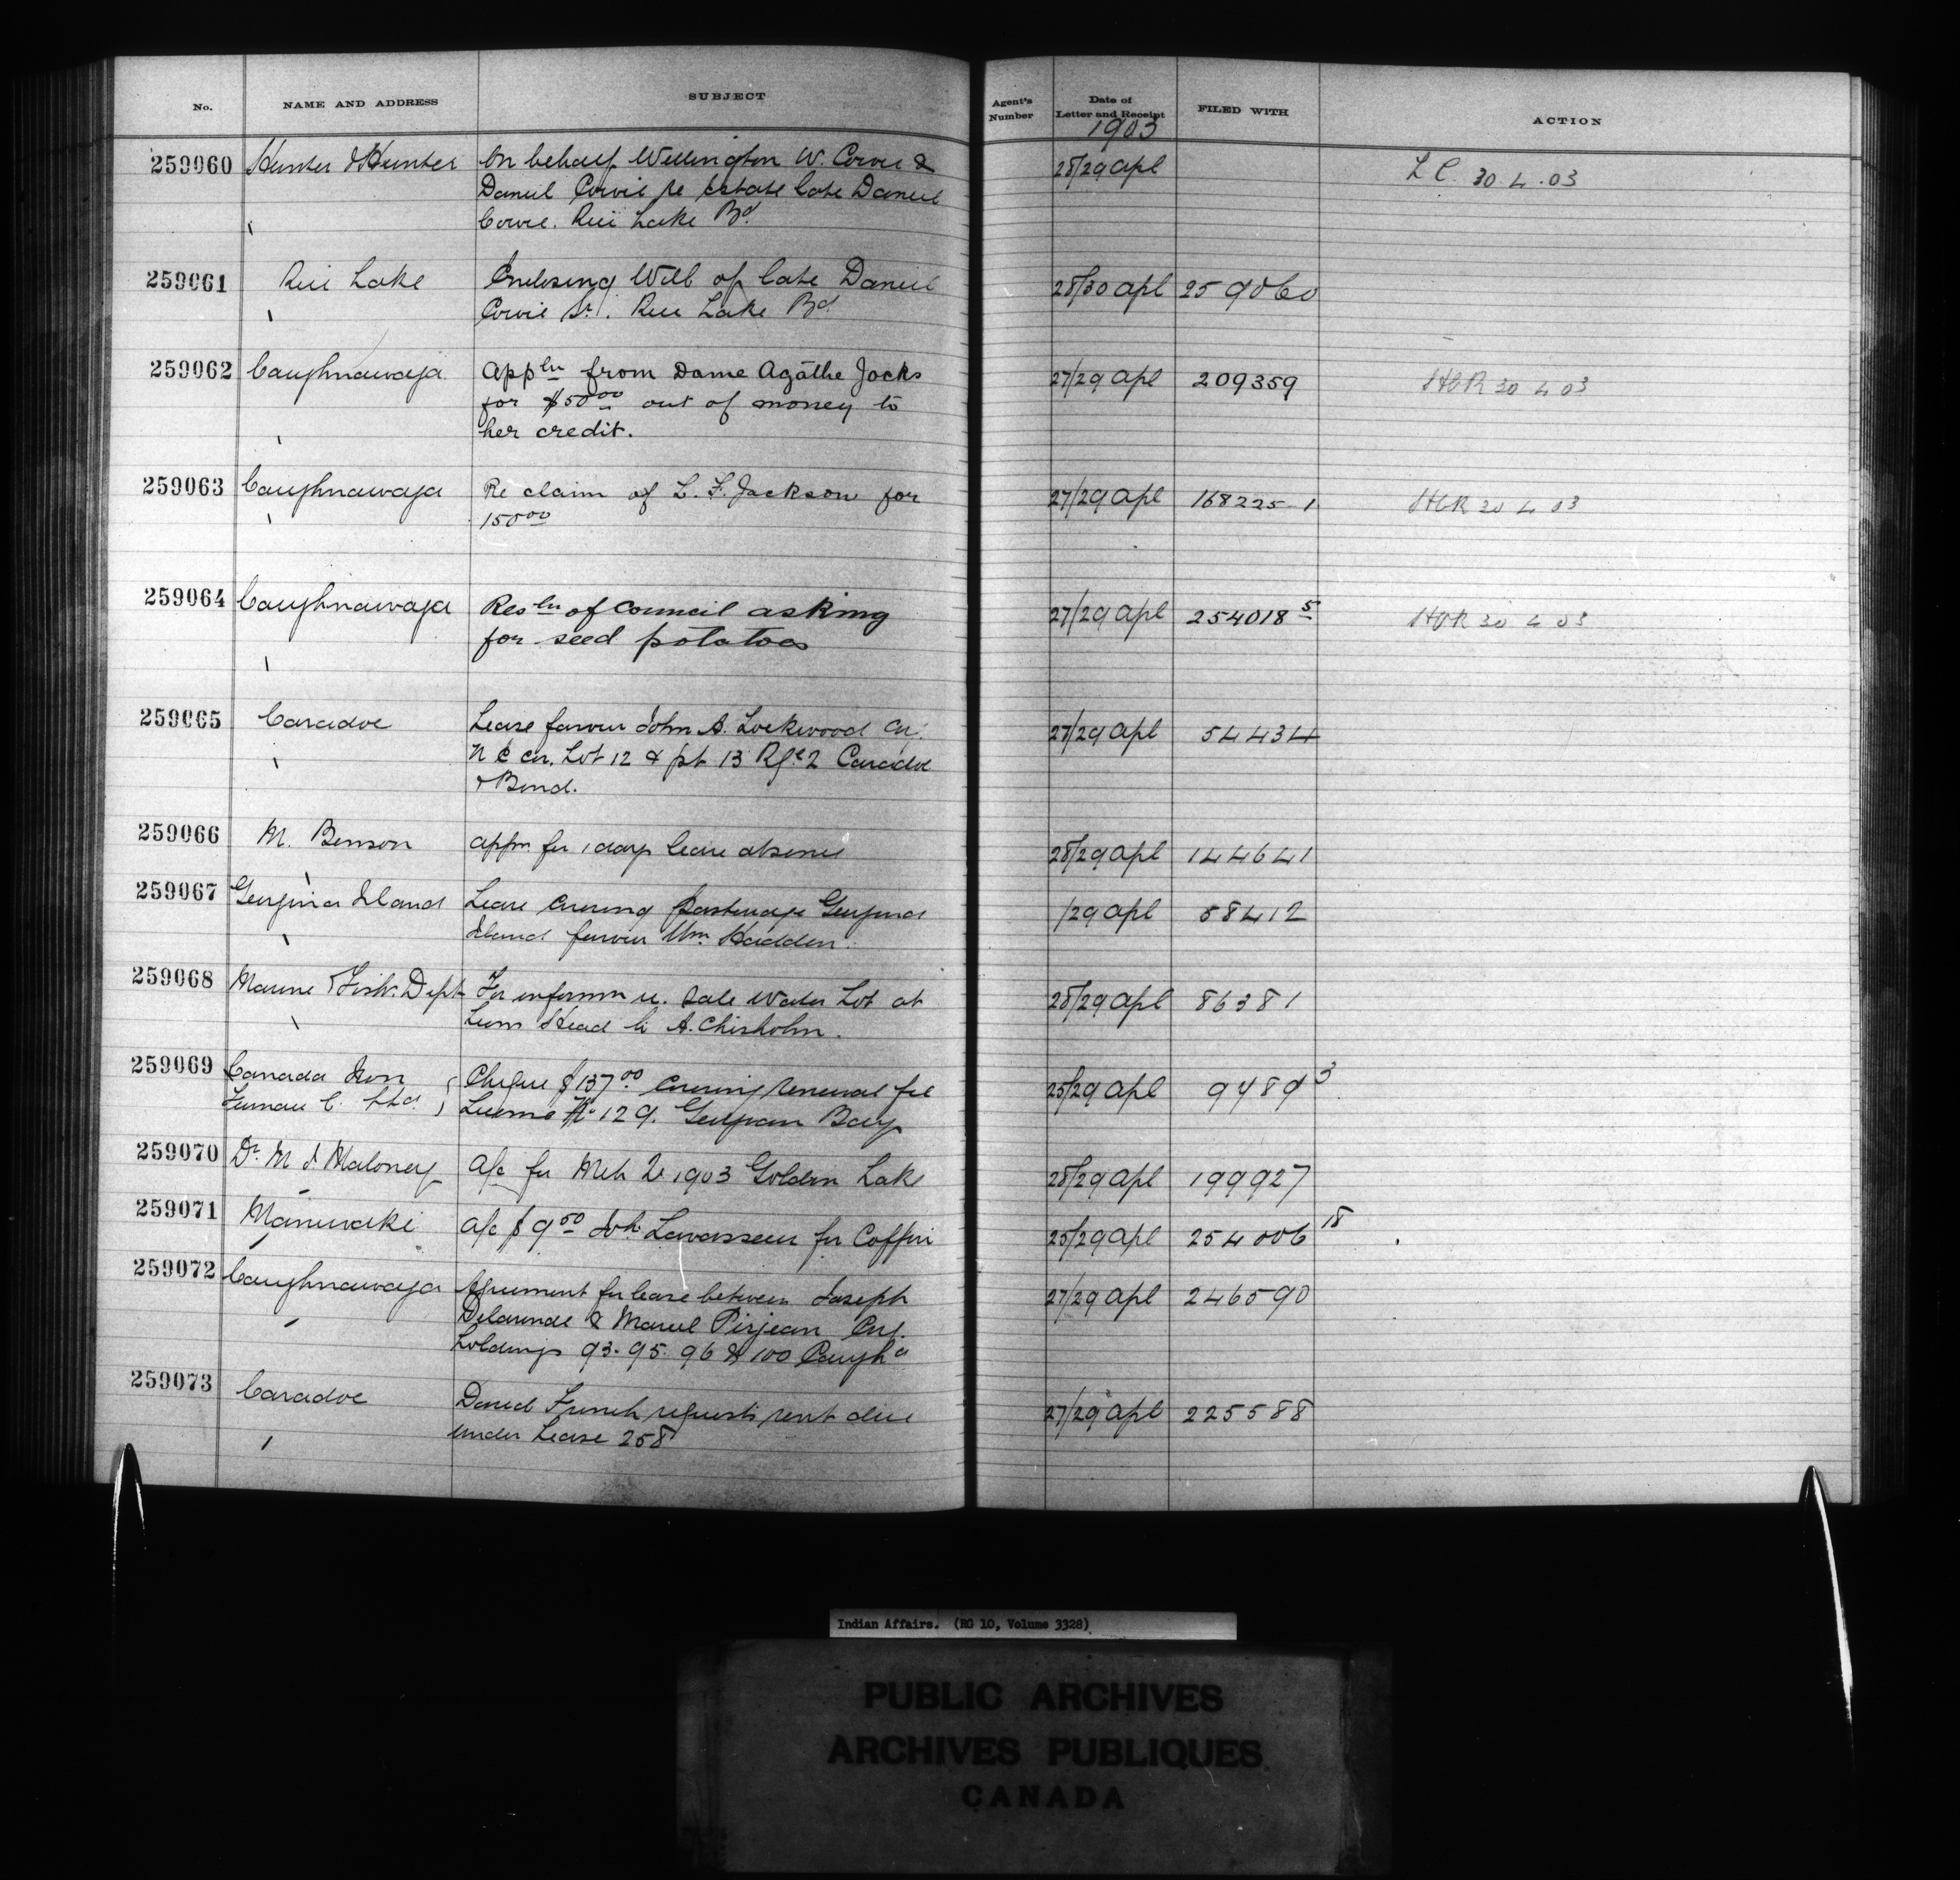 No. NAME AND ADDRESS SUBJECT Agent's Number Date of Letter and Receipt FILED WITH ACTION
1903
259060 Hunter & Hunter On behalf Wellington W. Cowie & 28/29 Apl L C. 30.4.03
Daniel Cowie re Estate late Daniel
Cowie. Rice Lake Bd.
259061 Rice Lake Enclosing Will of late Daniel 28/30 Apl 259060
Cowie Sr. Rice Lake Bd.
259062 Caughnawaga Appln from Dame Agathe Jocks 27/29 Apl 209359 HCR 30 4 03
for $50 00 out of money to
her credit.
259063 Caughnawaga Re claim of L. F. Jackson for 27/29 Apl 168225-1 HCR 30 4 03
150 00
259064 Caughnawaga Resln of Council asking 27/29 Apl 254018 5 HCR 30 4 03
for seed potatoes
259065 Caradoc Lease favour John A. Lockwood
N E Cor. Lot 12 & pt 13 Rge 2 Caradoc 27/29 Apl 54434
& Bond.
259066 M. Benson Appn for 1 days leave absence 28/29 Apl 144641
259067 Georgina Island Lease covering pasturage Georgina /29 Apl 58412
Island favour Wm. Hadden.
259068 Marine & Fish. Dept For informn re. Sale Water Lot at 28/29 Apl 86381
Lions Head to A. Chisholm.
259069 Canada Iron Cheque $137 00 covering renewal fee 25/29 Apl 9489 3
Furnace C. Ltd. License No 129. Georgian Bay
259070 Dr. M J Maloney A/c for Mch 1903 Golden Lake 28/29 Apl 199927
259071 Maniwaki A/c $9 50 Levasseur for Coffin 25/29 Apl 254006 18
259072 Caughnawaga Agreement for lease between Joseph 27/29 Apl 246590
Delaronde & Marcel Pirjean Cvg.
holdings 93. 95. 96 & 100 Caugha
259073 Caradoc David French requests rent due 27/29 Apl 225588
under Lease 258
Indian Affairs. (RG 10, Volume 3328)
PUBLIC ARCHIVES
ARCHIVES PUBLIQUES
CANADA